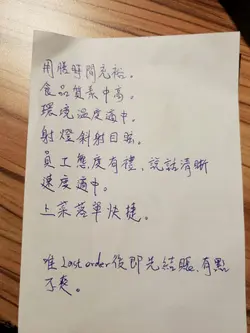 用膳時間充裕。
食品質素中高。
環境溫度適中。
射燈斜射目眩。
員工態度有禮、說話清晰
速度適中。
上菜落單快捷。
唯 Last order 後即先結賬、有點
不爽。